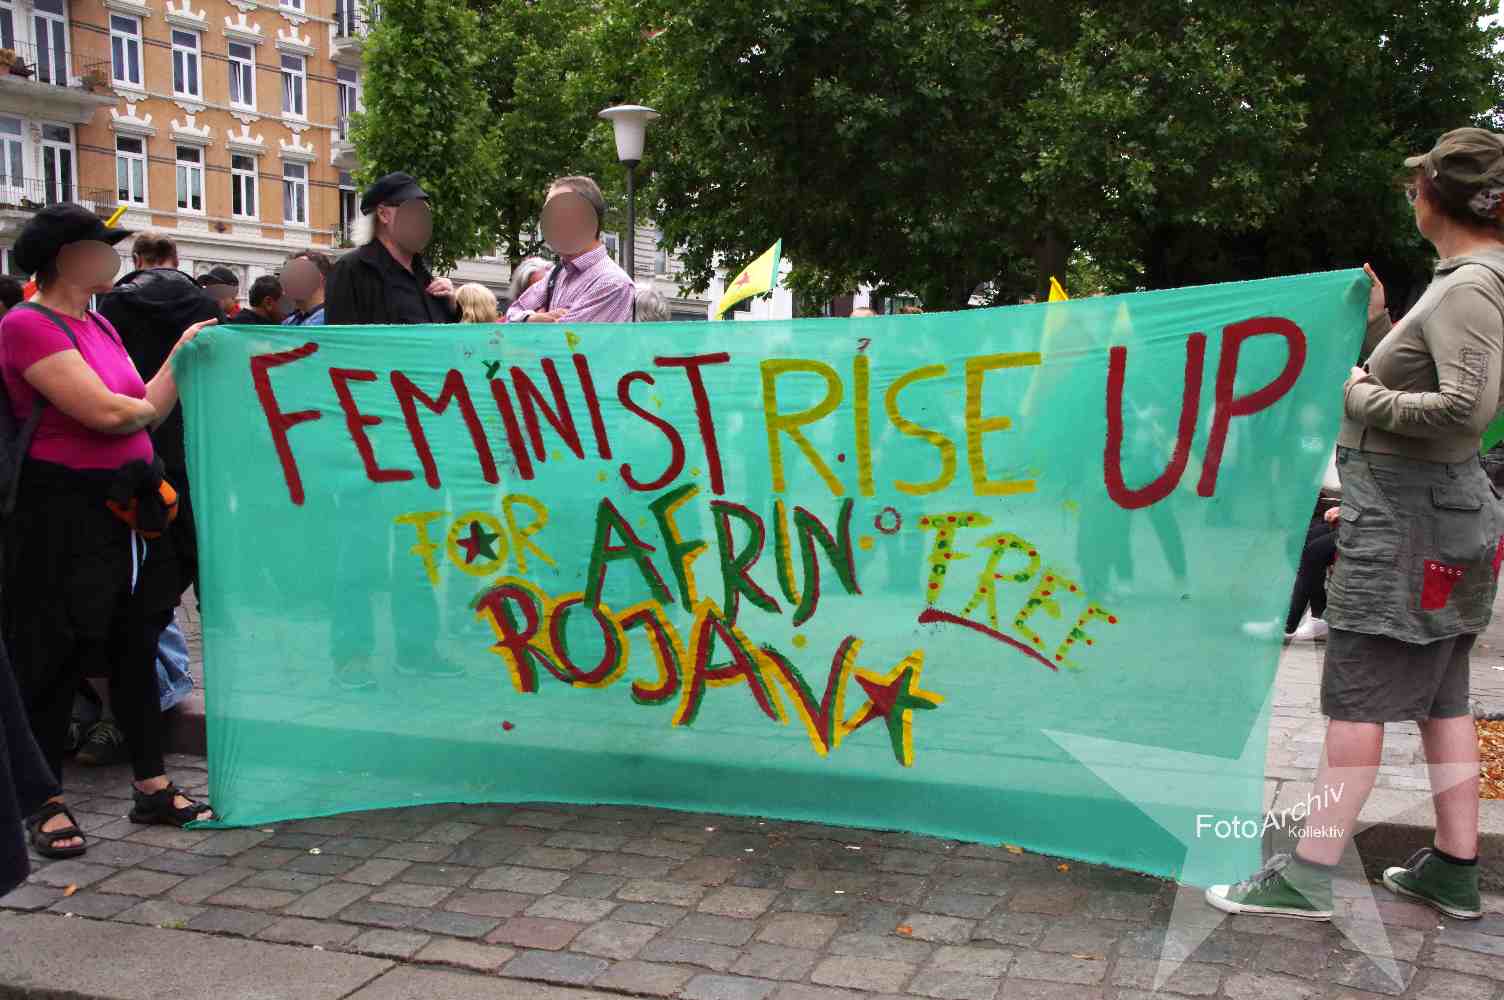 FEMINIST RISE UP
FOR AFRIN FREE
ROJAVA
FotoArchiv
Kollektiv